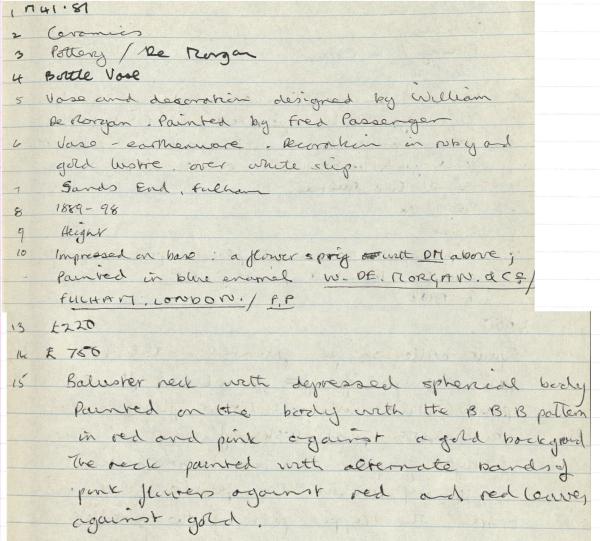 1 M 41.81
2 Ceramics
3 Pottery / De Morgan
4 Bottle Vase
5 Vase and decoration designed by William
De Morgan. Painted by Fred Passenger
6 Vase - earthenware. Decoration in ruby and
gold lustre over white slip.
7 Sands End, Fulham
8 1889-98
9 Height
10 Impressed on base: a flower sprig with DM above;
Painted in blue enamel W. DE. MORGAN. & Co /
FULHAM. LONDON. / F.P
13 £220
14 £ 750
15 Baluster neck with depressed spherical body
Painted on the body with the B.B.B pattern
in red and pink against a gold backgroud
The neck painted with alternate bands of
pink flowers against red and red leaves
against gold.